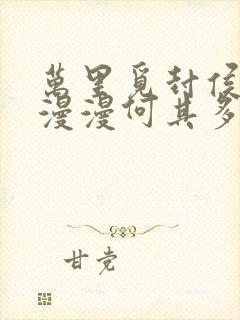 萬里覓封侯
漫漫何其多
甘党